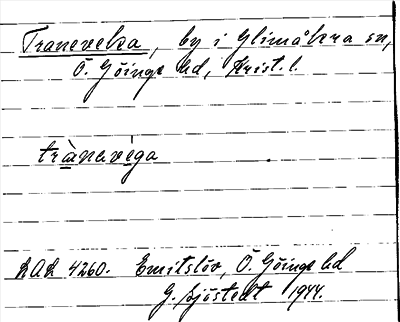 Traneveka, by i Glimåkra sn,
Ö. Göinge hd, Krist. l.
trànavéga
LAL 4260. Emitslöv, Ö. Göinge hd
G. Sjöstedt 1944.